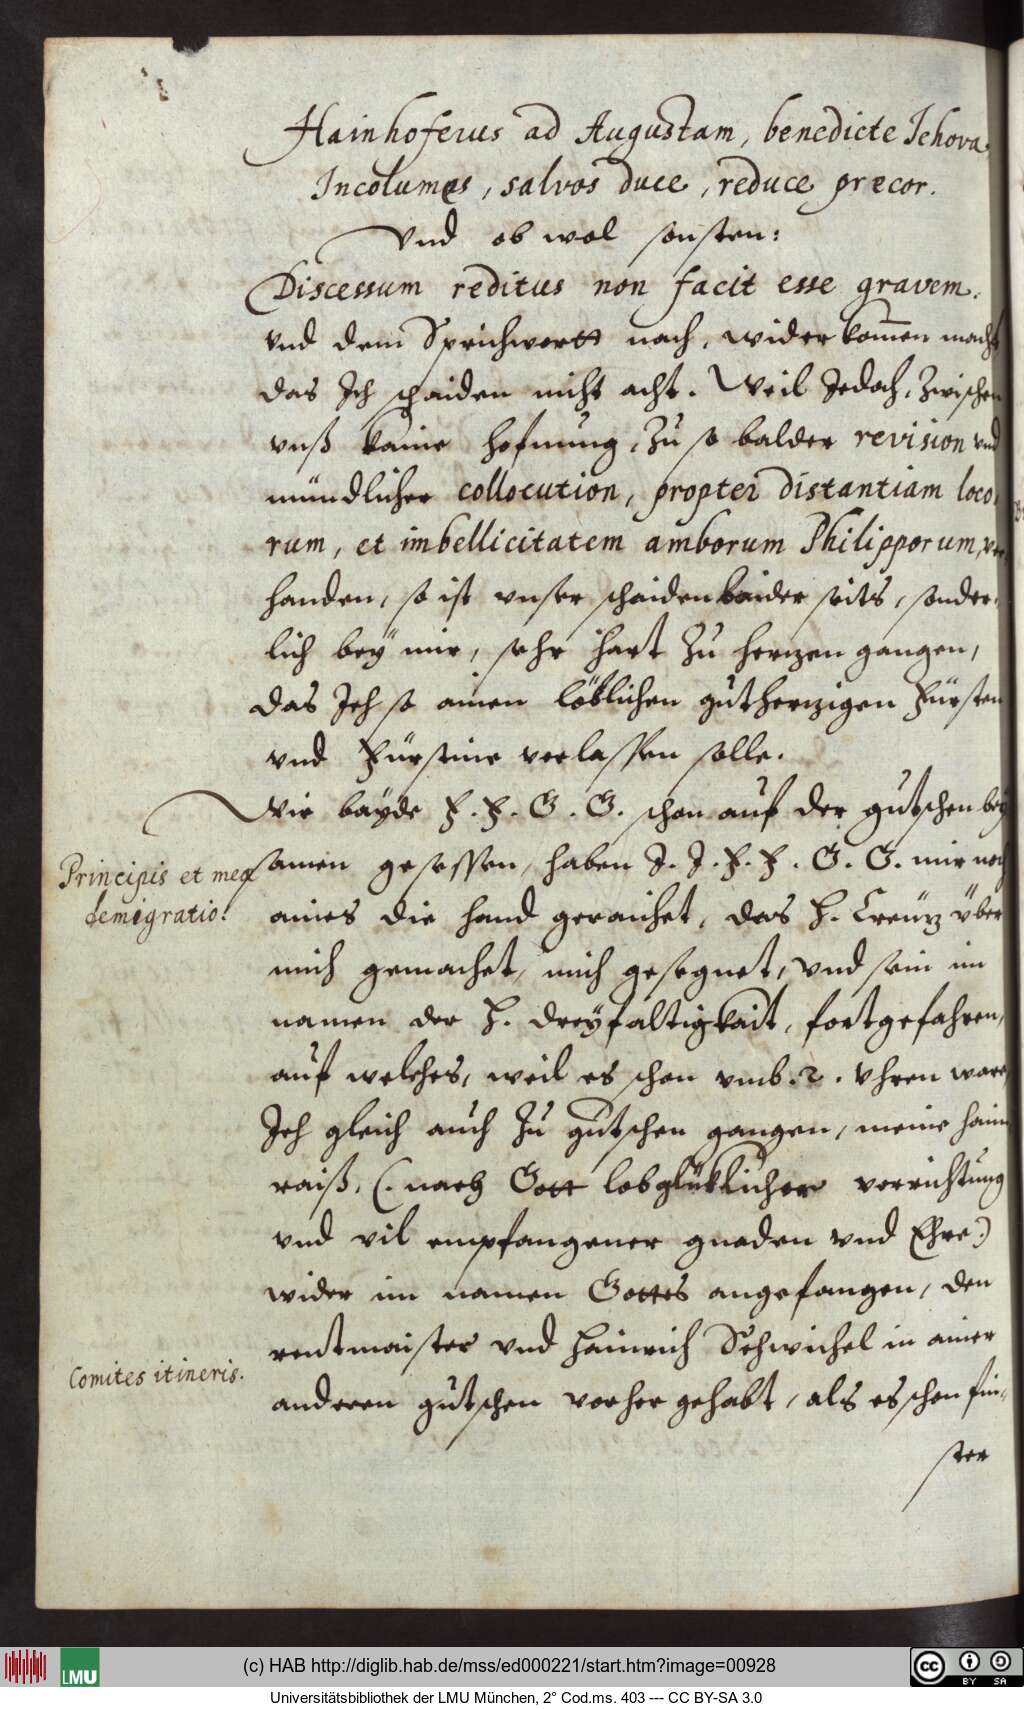 Hainhoferus ad Augustam, benedicte Jehova
Incolumes, salvos duce, reduce precor.
Vnd ob wol sonsten:
Discessum reditus non facit esse gravem.
vnd dem Sprichwortt nach, wider kom̄en macht
das Ich schaiden nicht acht. Weil Jedoch, zwischen
vnß kaine hofnung, zu so balder revision vnd
mündlicher collocution, propter distantiam loco-
rum, et imbellicitatem amborum Philipporum, vor
handen, so ist vnser schaiden baider seits, sonder-
lich bey mir, sehr hart zu herzen gangen,
das Ich so ainen löblichen gutherzigen Fürsten
vnd Fürstine verlassen solle.
Wie bayde F. F. G. G. schon auf der gutschen bey
samen gesessen, haben I. I. F. F. G. G. mir noch
Principis et meæ
demigratio.
aines die hand geraichet, das H. Creüz über
mich gemachet, mich gesegnet, vnd sein im
namen der H. dreyfaltigkait, fortgefahren,
auf welches, weil es schon vmb. 2. Vhren ware
Ich gleich auch zu gutschen gangen, meine haim
raiß, (. nach Gott lob glüklicher verrichtung
vnd vil empfangener gnaden vnd Ehre.)
wider im namen Gottes angefangen, den
rentmaister vnd Hainrich Schwichel in ainer
Comites itineris.
anderen gutschen vorher gehabt, als es schon fin-
ster
(c) HAB http://diglib.hab.de/mss/ed000221/start.htm?image=00928
LMU
cc BY SA
Universitätsbibliothek der LMU München, 2° Cod.ms. 403 --- CC BY-SA 3.0